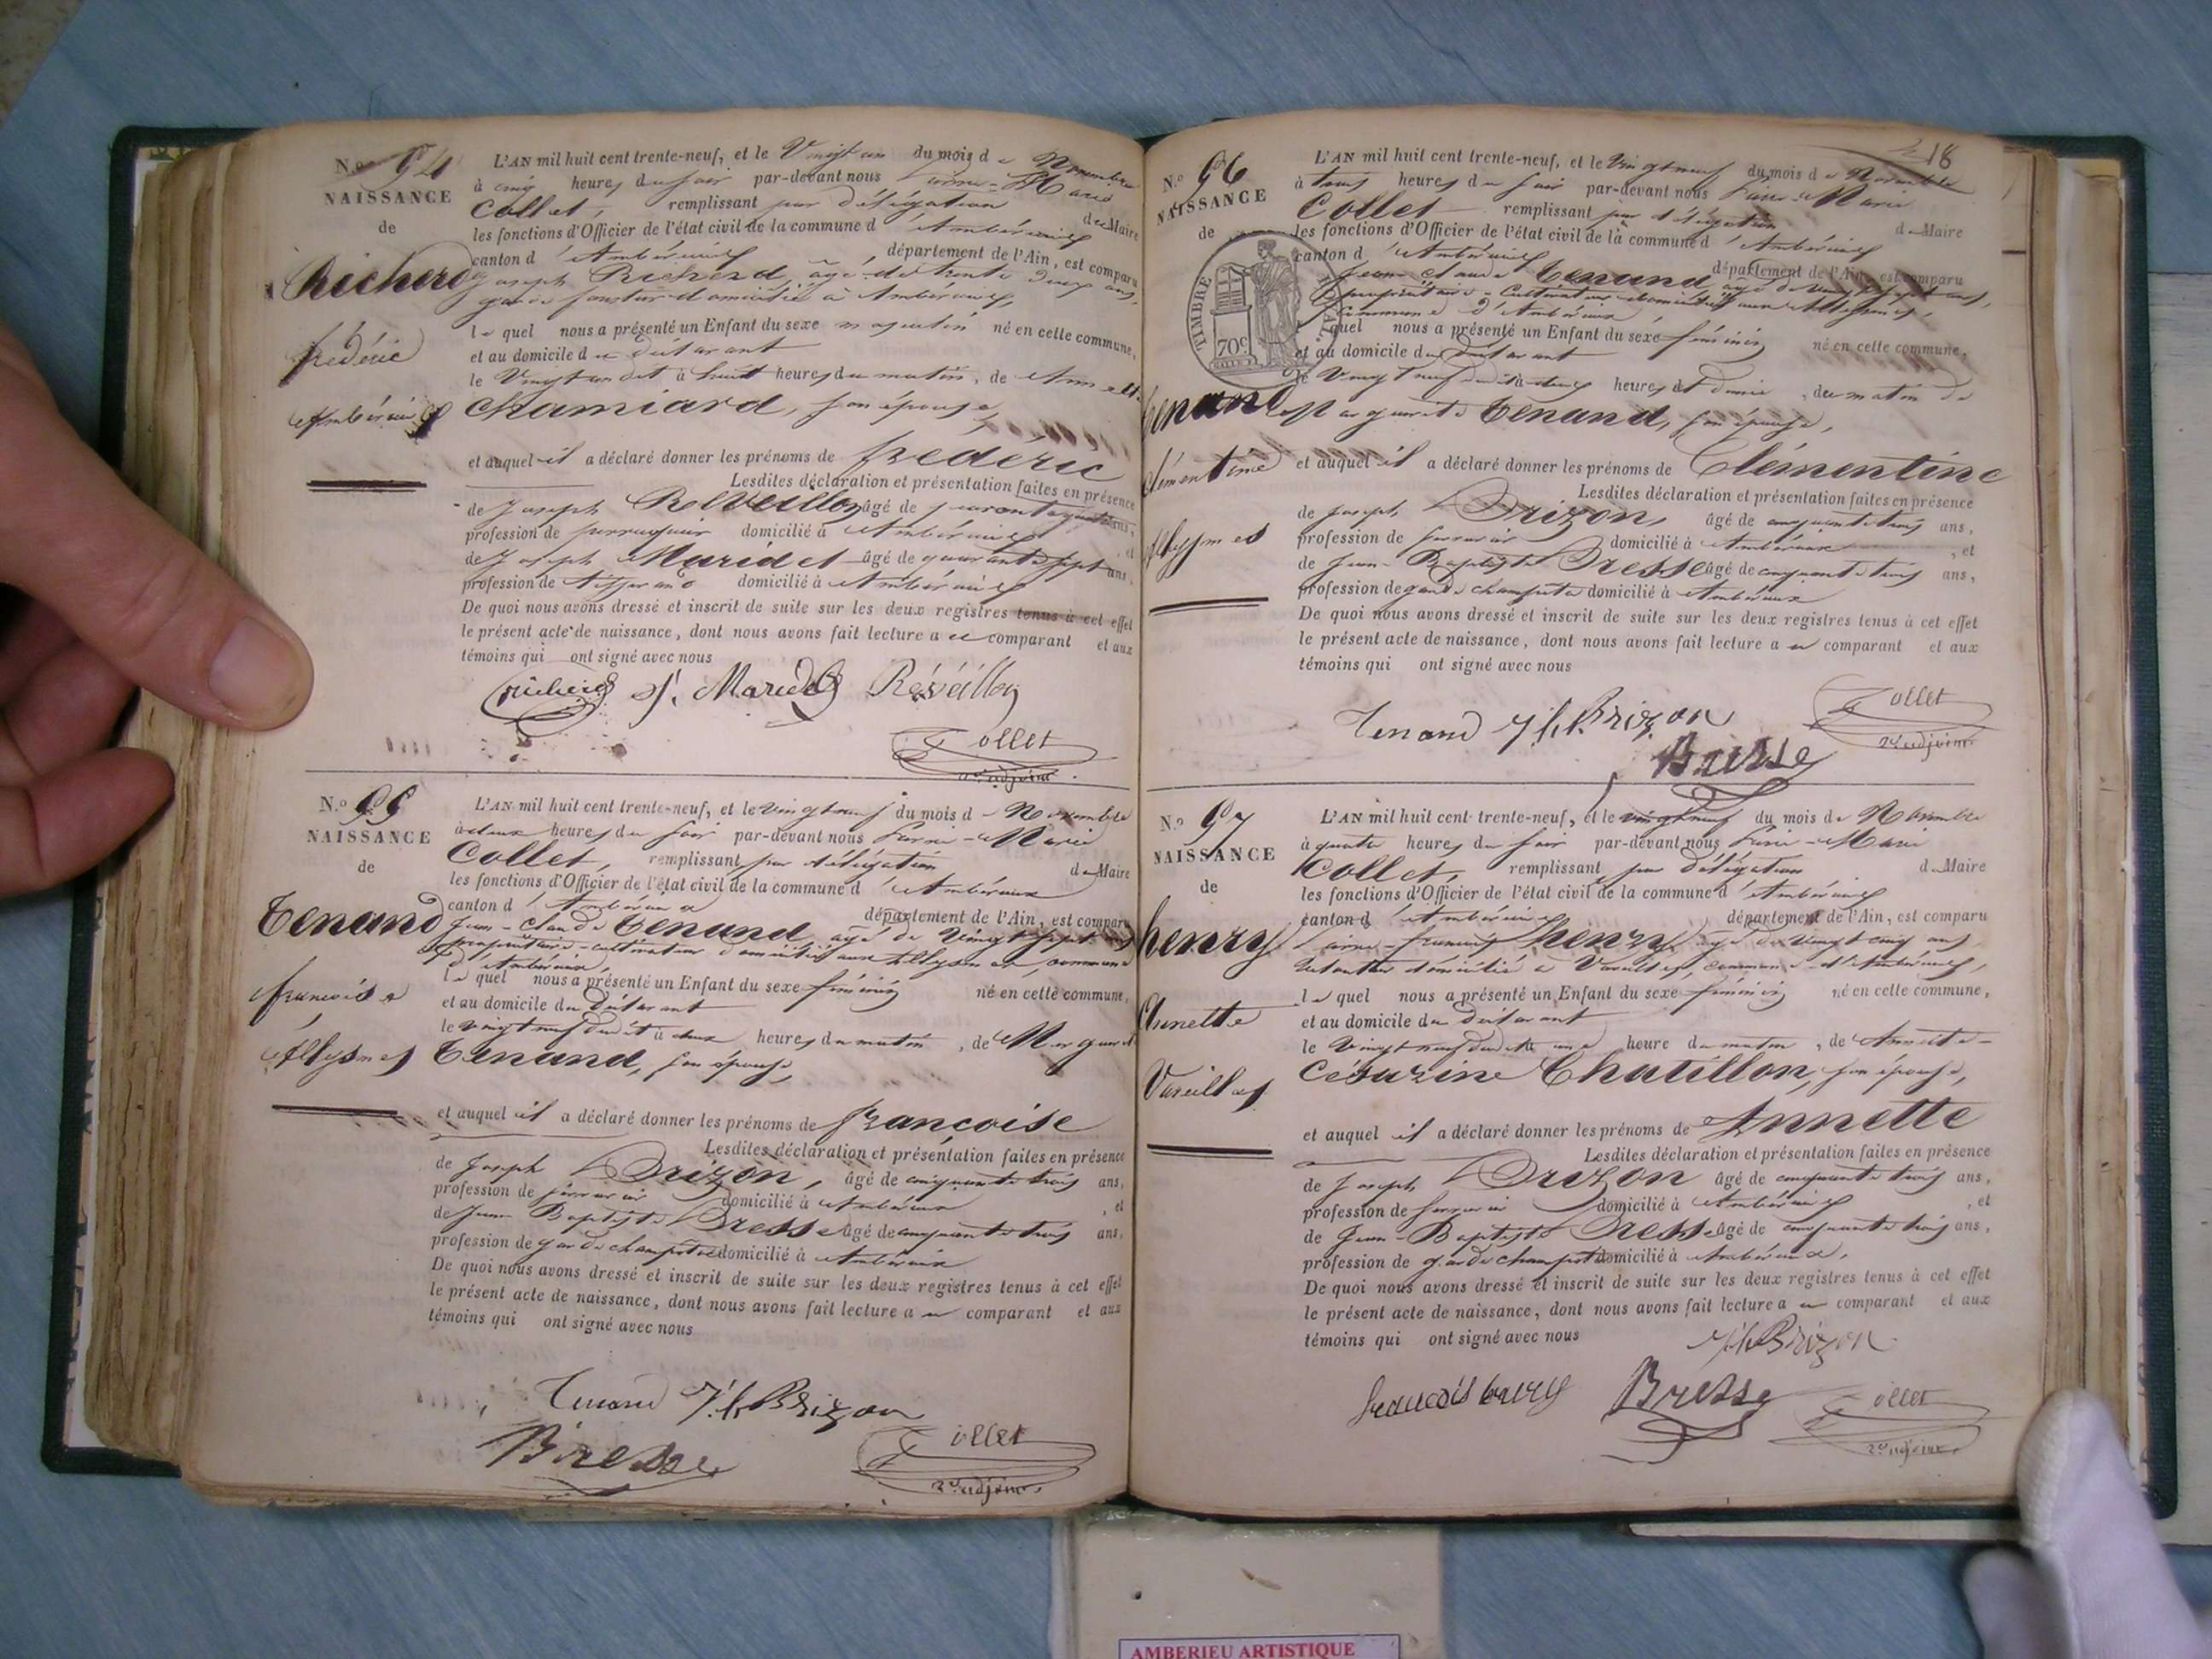 N.o 94
NAISSANCE
de
Richerd
frédéric
Ambérieux
L'AN mil huit cent trente-neuf, et le Vingt un du mois de Novembre
à cinq heures du soir par-devant nous Pierre-Marie
Collet, remplissant par délégation du Maire
les fonctions d'Officier de l'état civil de la commune d'Ambérieux
canton d'Ambérieux, département de l'Ain, est comparu
Joseph Richerd, âgé de trente deux ans,
garde forestier domicilié à Ambérieux,
lequel nous a présenté un Enfant du sexe masculin né en cette commune,
et au domicile du déclarant
le Vingt un dit à huit heures du matin, de Anne
Chamiard, son épouse,
et auquel il a déclaré donner les prénoms de frédéric
Lesdites déclaration et présentation faites en présence
de Joseph Réveillon âgé de ans,
profession de perruquier domicilié à Ambérieux, et
de Joseph Maridet âgé de quarante sept ans,
profession de tisserand domicilié à Ambérieux
De quoi nous avons dressé et inscrit de suite sur les deux registres tenus à cet effet
le présent acte de naissance, dont nous avons fait lecture au comparant et aux
témoins qui ont signé avec nous
Richerd J. Maridet Réveillon
Collet
2e adjoint.
N.o 95
NAISSANCE
de
Tenand
francoise
Allysmes
L'AN mil huit cent trente-neuf, et le vingt neuf du mois de Novembre
à deux heures du soir par-devant nous Pierre-Marie
Collet, remplissant par délégation du Maire
les fonctions d'Officier de l'état civil de la commune d'Ambérieux
canton d'Ambérieux département de l'Ain, est comparu
Jean-Claude Tenand, âgé de Vingt sept ans
propriétaire-cultivateur domicilié aux Allysmes, commune
d'Ambérieux,
lequel nous a présenté un Enfant du sexe féminin né en cette commune,
et au domicile du déclarant
le vingt neuf dudit à deux heures du matin, de Marguerite
Tenand, son épouse,
et auquel il a déclaré donner les prénoms de francoise
Lesdites déclaration et présentation faites en présence
de Joseph Brizon, âgé de cinquante trois ans,
profession de serrurier domicilié à Ambérieux, et
de Jean Baptiste Bresse âgé de cinquante trois ans,
profession de garde champêtre domicilié à Ambérieux
De quoi nous avons dressé et inscrit de suite sur les deux registres tenus à cet effet
le présent acte de naissance, dont nous avons fait lecture au comparant et aux
témoins qui ont signé avec nous
Tenand Brizon
Bresse Collet
2e adjoint.
18
N.o 96
NAISSANCE
de
TIMBRE ROYAL.
70c
Tenand
Clémentine
Allysmes
L'AN mil huit cent trente-neuf, et le Vingt neuf du mois de Novembre
à trois heures du soir par-devant nous Pierre-Marie
Collet remplissant par délégation du Maire
les fonctions d'Officier de l'état civil de la commune d'Ambérieux
canton d'Ambérieux département de l'Ain, est comparu
Jean Claude Tenand, âgé de vingt sept ans,
propriétaire-cultivateur domicilié aux Allysmes,
commune d'Ambérieux
lequel nous a présenté un Enfant du sexe féminin né en cette commune,
et au domicile du déclarant
le Vingt neuf dudit à deux heures et demie, du matin de
Marguerite Tenand, son épouse,
et auquel il a déclaré donner les prénoms de Clémentine
Lesdites déclaration et présentation faites en présence
de Joseph Brizon, âgé de cinquante trois ans,
profession de serrurier domicilié à Ambérieux, et
de Jean-Baptiste Bresse âgé de cinquante trois ans,
profession de garde champêtre domicilié à Ambérieux
De quoi nous avons dressé et inscrit de suite sur les deux registres tenus à cet effet
le présent acte de naissance, dont nous avons fait lecture au comparant et aux
témoins qui ont signé avec nous
Tenand Brizon Collet
Bresse 2e adjoint.
N.o 97
NAISSANCE
de
henry
Annette
Vareilles
L'AN mil huit cent trente-neuf, et le vingt neuf du mois de Novembre
à quatre heures du soir par-devant nous Pierre-Marie
Collet, remplissant par délégation du Maire
les fonctions d'Officier de l'état civil de la commune d'Ambérieux
canton d'Ambérieux département de l'Ain, est comparu
Pierre-francois henry, âgé de vingt cinq ans
domicilié à Vareilles, commune d'Ambérieux,
lequel nous a présenté un Enfant du sexe féminin né en cette commune,
et au domicile du déclarant
le Vingt neuf dudit à une heure du matin, de Annette-
Césarine Chatillon, son épouse,
et auquel il a déclaré donner les prénoms de Annette
Lesdites déclaration et présentation faites en présence
de Joseph Brizon âgé de cinquante trois ans,
profession de serrurier domicilié à Ambérieux, et
de Jean-Baptiste Bresse âgé de cinquante trois ans,
profession de garde champêtre domicilié à Ambérieux,
De quoi nous avons dressé et inscrit de suite sur les deux registres tenus à cet effet
le présent acte de naissance, dont nous avons fait lecture au comparant et aux
témoins qui ont signé avec nous
Brizon
francois henry Bresse Collet
2e adjoint
AMBERIEU ARTISTIQUE